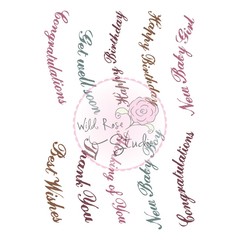 Congratulations
Get well soon
Happy Birthday
Happy Birthday
New Baby Girl
Best Wishes
Thank You
Thinking of You
New Baby Boy
Congratulations
Wild Rose
Studio